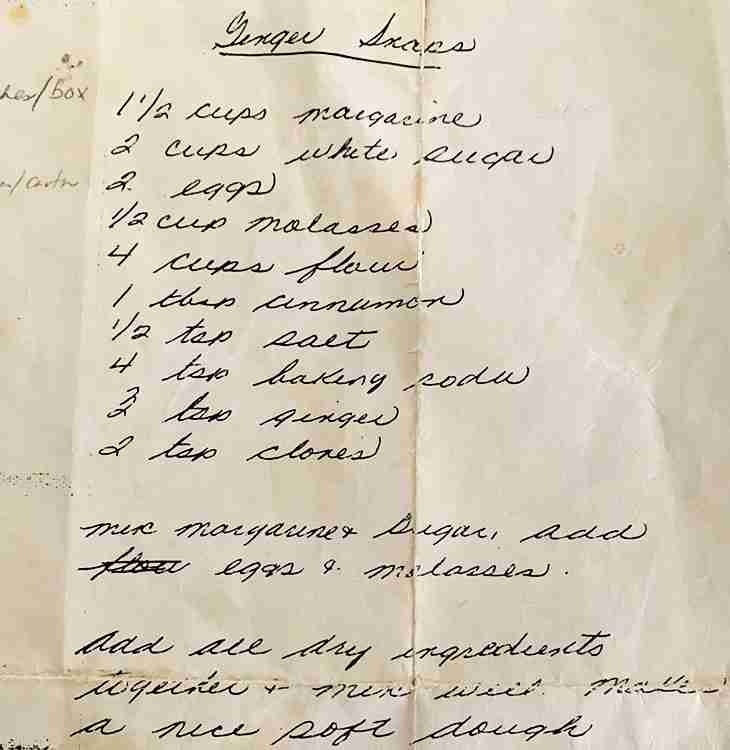 Ginger Snaps
/box
1 1/2 cups margarine
2 cups white sugar
2 eggs
1/2 cup molasses
4 cups flour
1 tbsp cinnamon
1/2 tsp salt
4 tsp baking soda
2 tsp ginger
2 tsp cloves
mix margarine & sugar, add
eggs & molasses.
add all dry ingredients
together & mix well. Makes
a nice soft dough